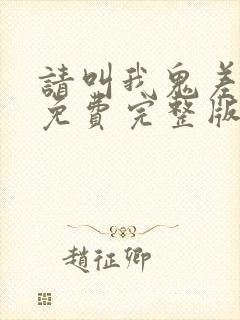 請叫我鬼差
免費完整版
趙征卿